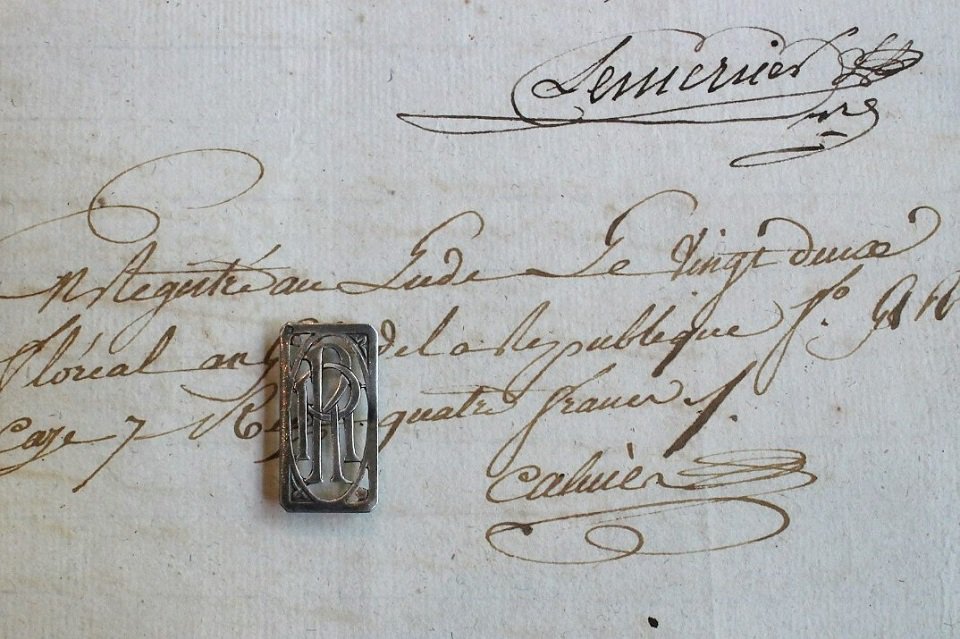 Lemernier
Registré au Lude Le Vingt deux
floréal an de la Republique f.º
Case 7 quatre francs
Cahier